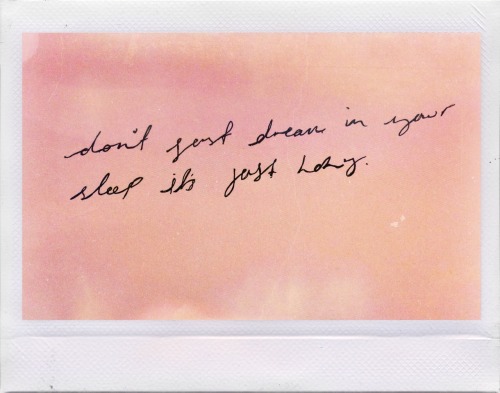 don't just dream in your
sleep it's just lazy.